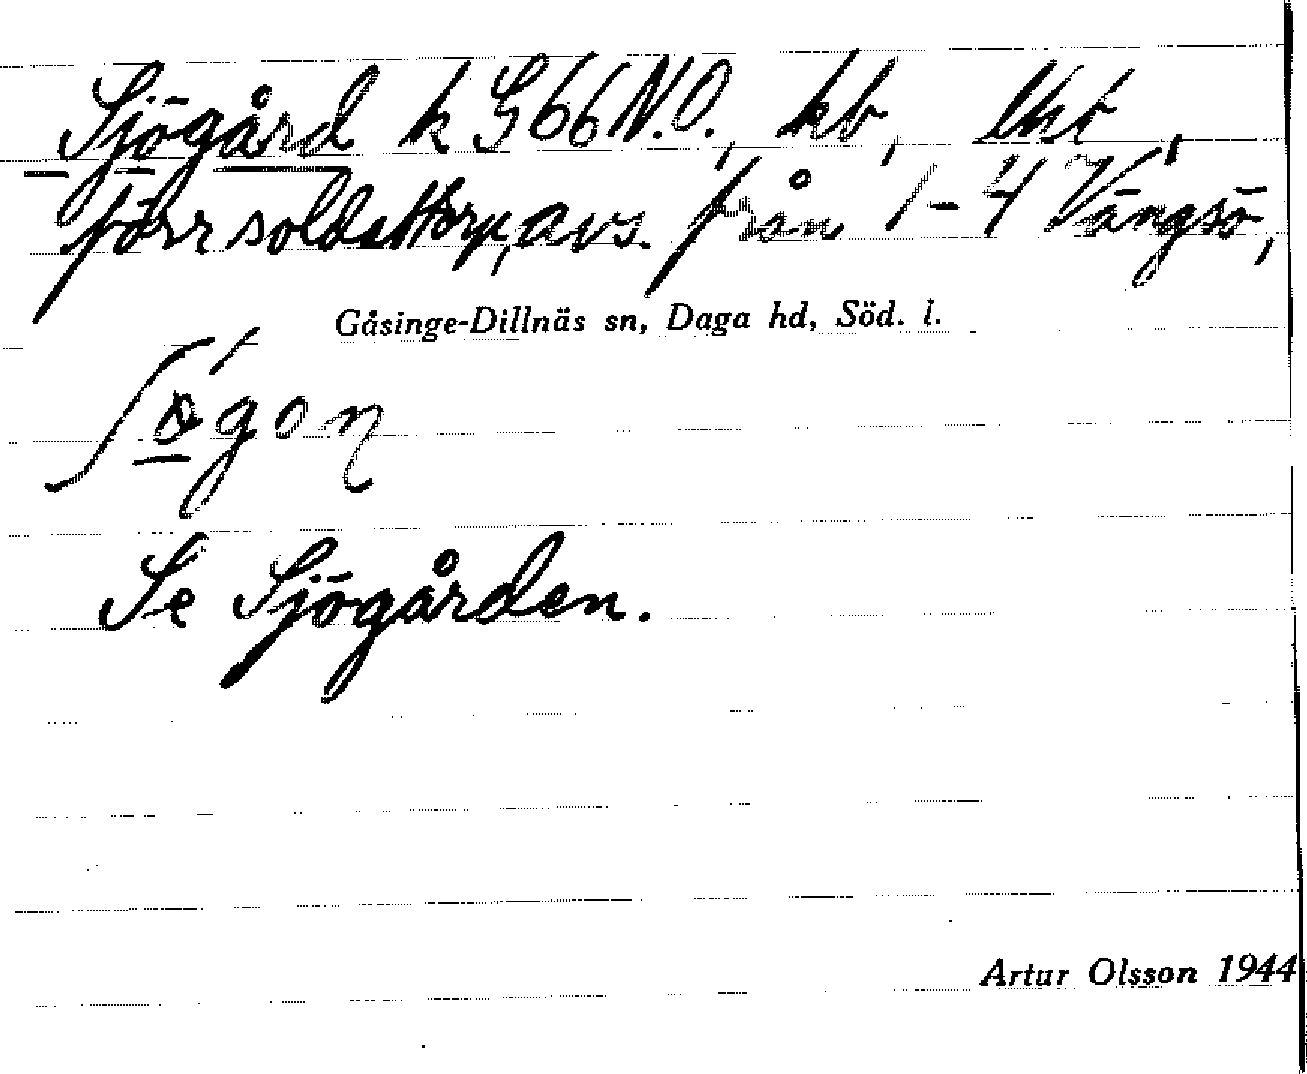 Sjögård k S66 N.O., kb, lht,
förr soldattorp, avs. från 1-4 Vängsö,
Gåsinge-Dillnäs sn, Daga hd, Söd. l.
Se Sjögården.
Artur Olsson 1944